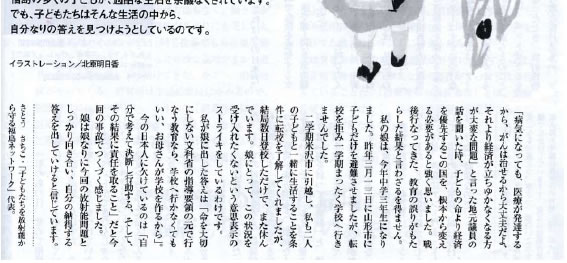 でも、子どもたちはそんな生活の中から、
自分なりの答えを見つけようとしているのです。
イラストレーション／北原明日香
「病気になっても、医療が発達する
から、がんは治せるから大丈夫だよ。
それより経済が立ちゆかなくなる方
が大変な問題」と言った地元議員の
話を聞いた時、子どもの命より経済
を優先するこの国を、根本から変え
る必要があると強く思いました。戦
後行なってきた、教育の誤りがもた
らした結果と言わざるを得ません。
私の娘は、今年中学三年生になり
ました。昨年三月一三日に山形市に
子どもだけを避難させましたが、転
校を拒み一学期まったく学校へ行き
ませんでした。
二学期米沢市に引越し、私も二人
の子どもと一緒に生活することを条
件に転校を了解してくれましたが、
結局数日登校しただけで、また休ん
でいます。娘にとって、この状況を
受け入れたくないという意思表示の
ストライキをしているわけです。
私が娘に出した答えは「命を大切
にしない文科省の指導要領の元で行
なう教育なら、学校へ行かなくても
いい、お母さんが学校を作るから」。
今の日本人に欠けているのは「自
分で考えて決断し行動する。そして、
その結果に責任を取ること」だと今
回の事故でつくづく感じました。
娘は娘なりに今回の放射能問題と
しっかり向き合い、自分の納得する
答えを出していけると信じています。
さとう さちこ／「子どもたちを放射能か
ら守る福島ネットワーク」代表。